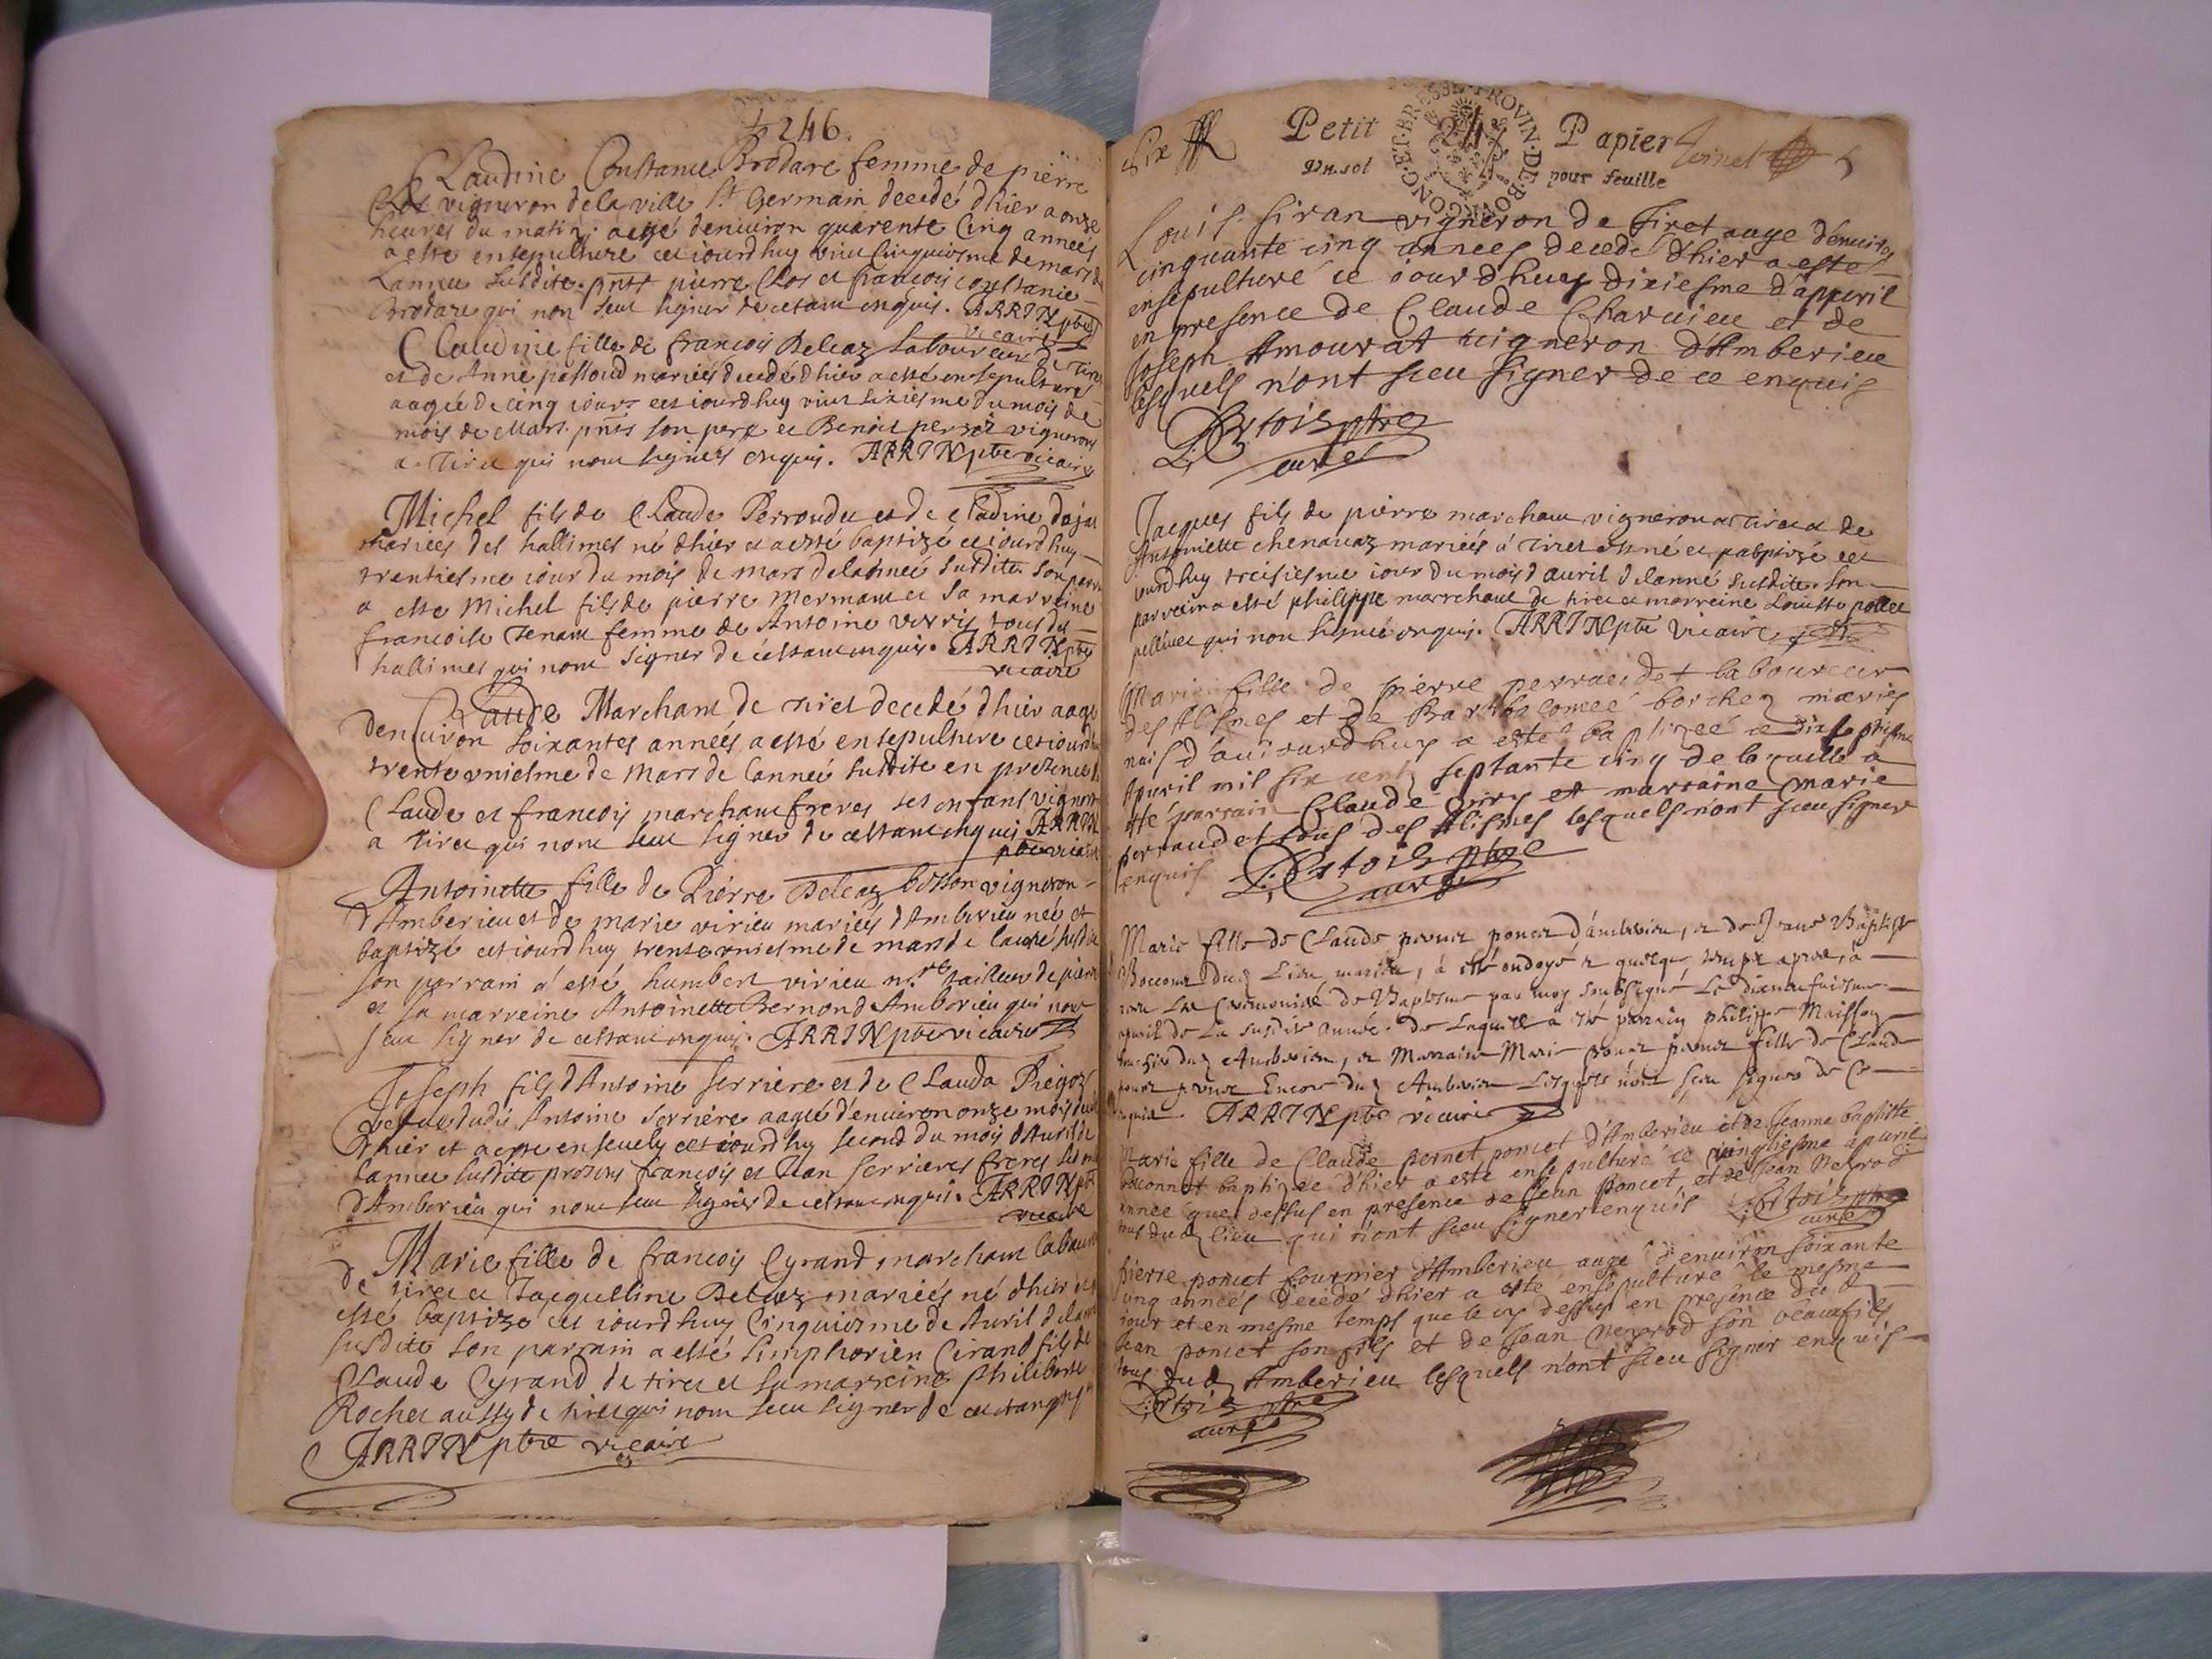 246.
Claudine Constance Brodare femme de pierre
Clos vigneron de la ville St Germain decedé dhier a onze
heures du matin. aagé denuiron quarente Cinq années
a esté ensepulture ce iourdhuy vint Cinquiesme de mars de
Lannee susdite. pnts pierre Clos et francois constance
Brodare qui non seu signer de cetant enquis. ARRIN pbre
vicaire
Claudine fille de francois Beleaz Laboureur de Tiret
et de Anne passoud mariés decedé dhier a esté ensepulturé
aagée de cinq iours ce iourdhuy vint sixiesme du mois de
mois de Mars. pnts son pere et Benoit perret vignerons
a Tiret qui nont signer enquis. ARRIN pbre vicaire
Michel fils de Claude Perroudet et de Cladine
mariees des hallimes né dhier et a esté baptizé ce iourdhuy
trentiesme iour du mois de mars de lannee susdite. son parrein
a esté Michel fils de pierre Mermant et sa marreine
francoise Tenant femme de Antoine vivris tous des
hallimes qui nont signer de cetant enquis. ARRIN pbre
vicaire
Claude Marchant de Tiret decedé dhier aagé
denuiron soixantes années a esté ensepulture ce iourdhuy
trente vniesme de Mars de lanneé susdite en presence de
Claude et francois marchant freres ses enfans vignerons
a Tiret qui nont seu signer de cetant enquis ARRIN
pbre vicaire
Antoinette fille de Pierre Beleaz bosson vigneron
d'Amberieu et de marie virieu mariés d'Amberieu née et
baptizé ce iourdhuy trente vniesme de mars de lanné susdite
son parrain a esté humbert virieu mre tailleur de pierre
et sa marreine Antoinette Bernon d'Amberieu qui non
seu signer de cetant enquis. ARRIN pbre vicaire
Joseph fils d'Antoine serriere et de Clauda
vefue dudit Antoine serriere aagé denuiron onze mois decedé
dhier et a esté enseuely ce iourdhuy second du mois d'Auril de
lannee susdite presens francois et Jean serrieres freres
d'Amberieu qui nont seu signer de cetant enquis. ARRIN pbre
vicaire
Marie fille de francois Cyrand marchant laboureur
de tiret et Jacqueline Beleaz mariés né dhier et a
esté baptizé ce iourdhuy Cinquiesme de Auril de lanne
susdite son parrain a esté simphorien Cirand fils de
Claude Cyrand de tiret et sa marreine Philiberte
Rochet aussy de tiret qui nont seu signer de cetant enquis
ARRIN pbre vicaire
Six Petit Papier
Vn sol pour feuille
GEN·ET·BRESSE·PROVIN·DE·BOVRGONG
Louis siran vigneron de Tiret auge d'enuiron
cinquante cinq annees decedé d'hier a esté
ensepulturé ce iourd'huy dixiesme d'appuril
en presence de Claude Charuieu et de
Joseph Amourat uigneron d'Amberieu
lesquels n'ont sceu signer de ce enquis
ptre
curé
Jacques fils de pierre marchant vigneron a Tiret et de
Antoinette chenauaz mariés a Tiret est né et pabtizé ce
iourdhuy treisiesme iour du mois d'auril de lanné susdite. son
parrein a esté philippe marchant de tiret et marreine Louise
qui non signer enquis. ARRIN pbre vicaire
Marie fille de pierre perraudet laboureur
des Alismes et de Bartholomeé mariés
nais d'auiourdhuy a esté baptizeé ce dixseptiesme
Apuril mil six cents septante cinq de laquelle a
esté parrain Claude et marraine Marie
perraudet tous des Alismes lesquels n'ont sceu signer
enquis ptre
curé
Marie fille de Claude pernet poncet d'amberieu, et de Jeane Baptiste
Boccon dud Lieu mariés, à esté ondoyé et quelque temps apres, a
receu les Ceremonies de Baptesme par moy soubsigné Le dixneufuiesme
apuril de La susdite année. de Laquelle a esté parrain philippe
dud Amberieu, et Marraine Marie fille de Claude
poncet pernet encor dud Amberieu Lesquels n'ont sceu signer de Ce
enquis. ARRIN pbre vicaire
Marie fille de Claude pernet poncet d'Amberieu et de Jeanne baptiste
boconnot baptizeé d'hier a esté ensepulturé ce vingtiesme apuril
année que dessus en presence de Jean poncet, et de Jean Neyrod
tous dud lieu qui n'ont sceu signer enquis ptre
curé
pierre poncet fournier d'Amberieu aagé d'enuiron soixante
cinq années decedé d'hier a esté ensepulturé le mesme
iour et en mesme temps que le cy dessus en presence du d
Jean poncet son fils et de Jean Neyrod son beaufils
tous dud Amberieu lesquels n'ont sceu signer enquis
ptre
curé